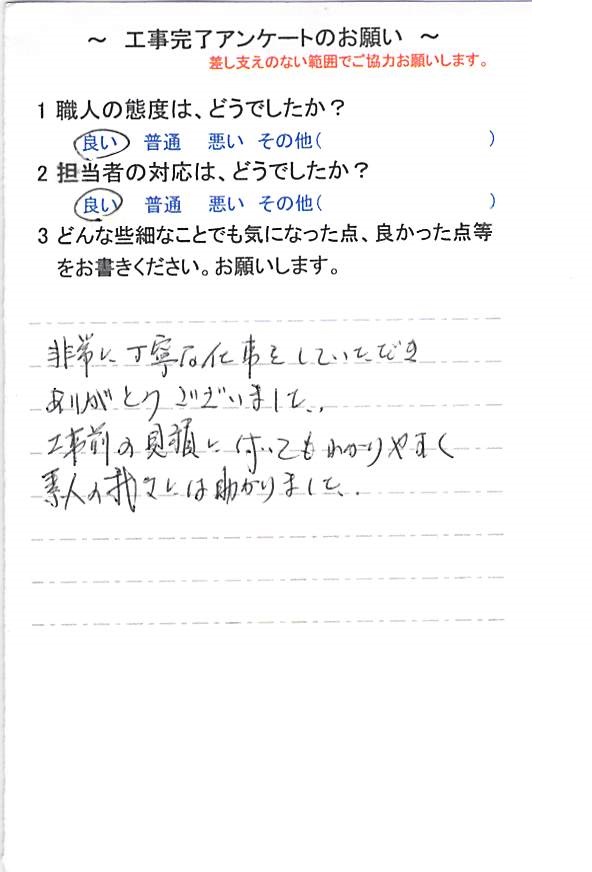 ～ 工事完了アンケートのお願い ～
差し支えのない範囲でご協力お願いします。
1 職人の態度は、どうでしたか？
良い 普通 悪い その他( )
2 担当者の対応は、どうでしたか？
良い 普通 悪い その他( )
3 どんな些細なことでも気になった点、良かった点等
をお書きください。お願いします。
非常に丁寧な仕事をしていただき
ありがとうございました。
工事前の見積に付いてもわかりやすく
素人の我々には助かりました。